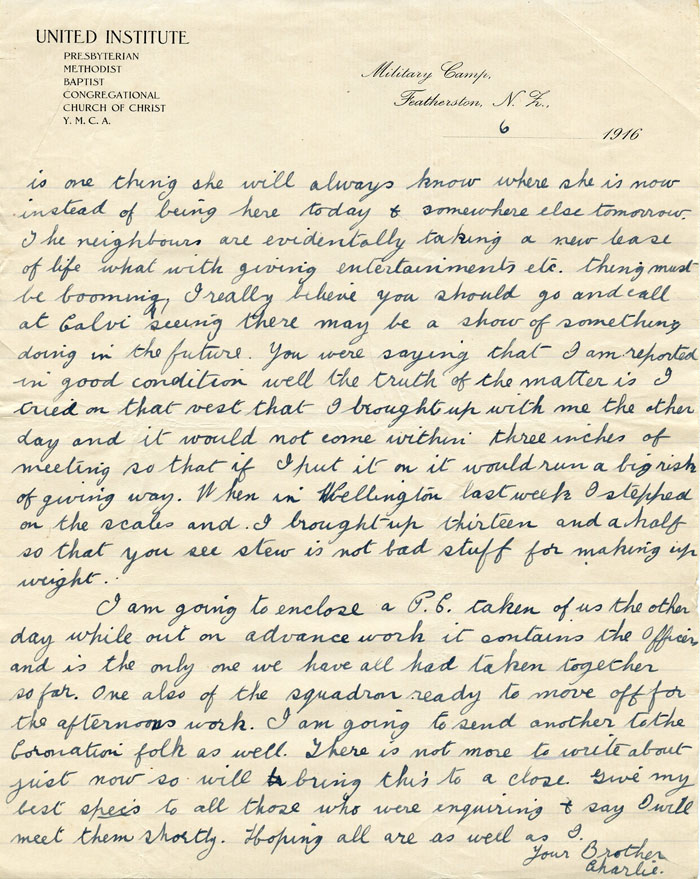 UNITED INSTITUTE
PRESBYTERIAN
METHODIST
BAPTIST
CONGREGATIONAL
CHURCH OF CHRIST
Y. M. C. A.
Military Camp,
Featherston, N. Z.,
6 1916
is one thing she will always know where she is now
instead of being here today & somewhere else tomorrow.
The neighbours are evidentally taking a new lease
of life what with giving entertainments etc. thing must
be booming, I really believe you should go and call
at Calvi seeing there may be a show of something
doing in the future. You were saying that I am reported
in good condition well the truth of the matter is I
tried on that vest that I brought up with me the other
day and it would not come within three inches of
meeting so that if I put it on it would run a big risk
of giving way. When in Wellington last week I stepped
on the scales and I brought up thirteen and a half
so that you see stew is not bad stuff for making up
weight.
I am going to enclose a P.C. taken of us the other
day while out on advance work it contains the Officer
and is the only one we have all had taken together
so far. One also of the squadron ready to move off for
the afternoons work. I am going to send another to the
Coronation folk as well. There is not more to write about
just now so will bring this to a close. Give my
best specs to all those who were enquiring & say I will
meet them shortly. Hoping all are as well as I.
Your Brother
Charlie.